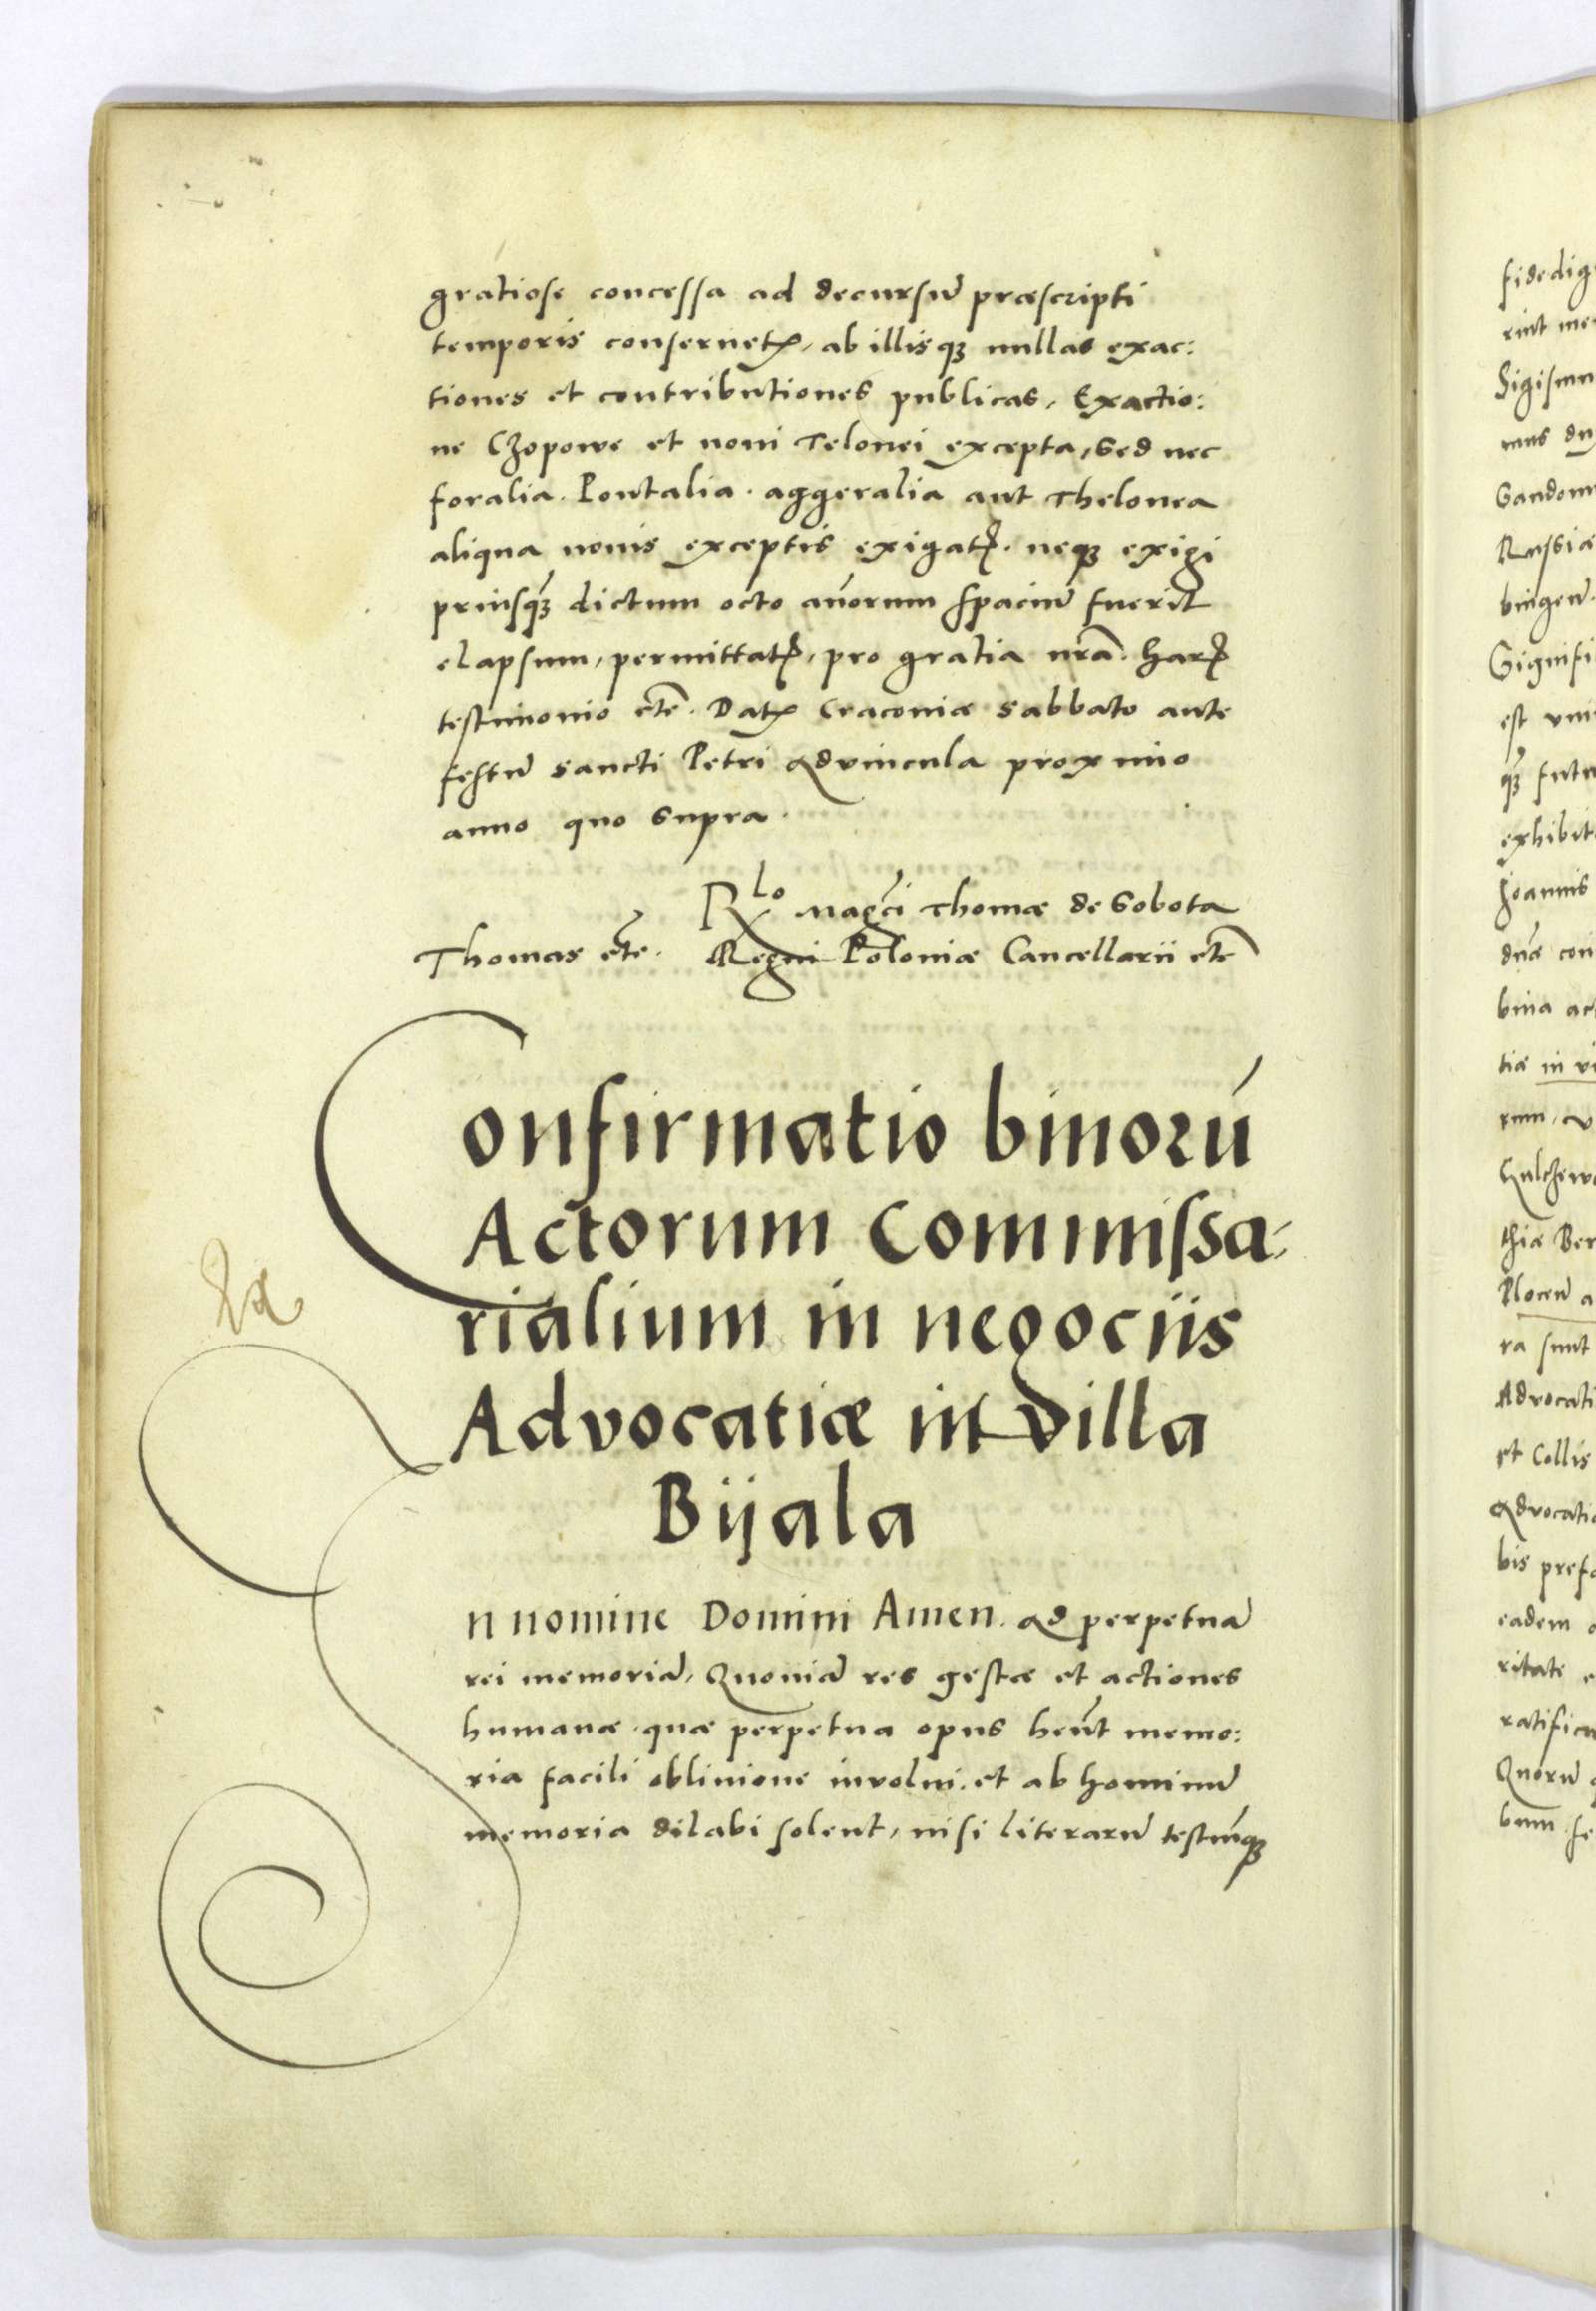 gratiose concessa ad decursū præscripti
temporis conseruetꝝ, ab illisqꝫ nullas exac:
tiones et contributiones publicas, Exactio:
ne Czopowe et noui Telonei excepta, Sed nec
foralia. Pontalia. aggeralia aut Thelonea
aliqua nouis exceptis exigatꝝ. neqꝫ exigi
priusqꝫ̄ dictum octo an̄orum spaciū fuerit
elapsum, permittatꝝ, pro gratia nr̄a. harꝝ
testimonio etc̄. Datꝝ Cracouiæ sabbato ante
festū sancti Petri Aduincula proximo
anno quo supra.
Rlo magci Thomæ de Sobota
Thomas etc̄. Regni Poloniæ Cancellarii etc̄
Confirmatio binorū
Actorum Commissa-
rialium in negociis
Advocatiæ in villa
Bijala
In nomine Domini Amen. Ad perpetuā
rei memoriā, Quoniā res gestæ et actiones
humanæ. quæ perpetua opus hēnt memo:
ria facili obliuione inuolui. et ab hominū
memoria dilabi solent, nisi literarū testiūqꝫ
fidedig
Sigismu
mus du
Sandom
Russiæ
bingeū.
Signifi
est vni
qꝫ̄ futu
exhibit
Joannis
dn̄æ con
bina ac
tiæ in vi
rum. v
thiæ Ber
Plocen̄ a
ra sunt
Advocati
et Collis
Advocatia
bis prefa
eadem
ritate
ratifica
Quorū
bnm. se